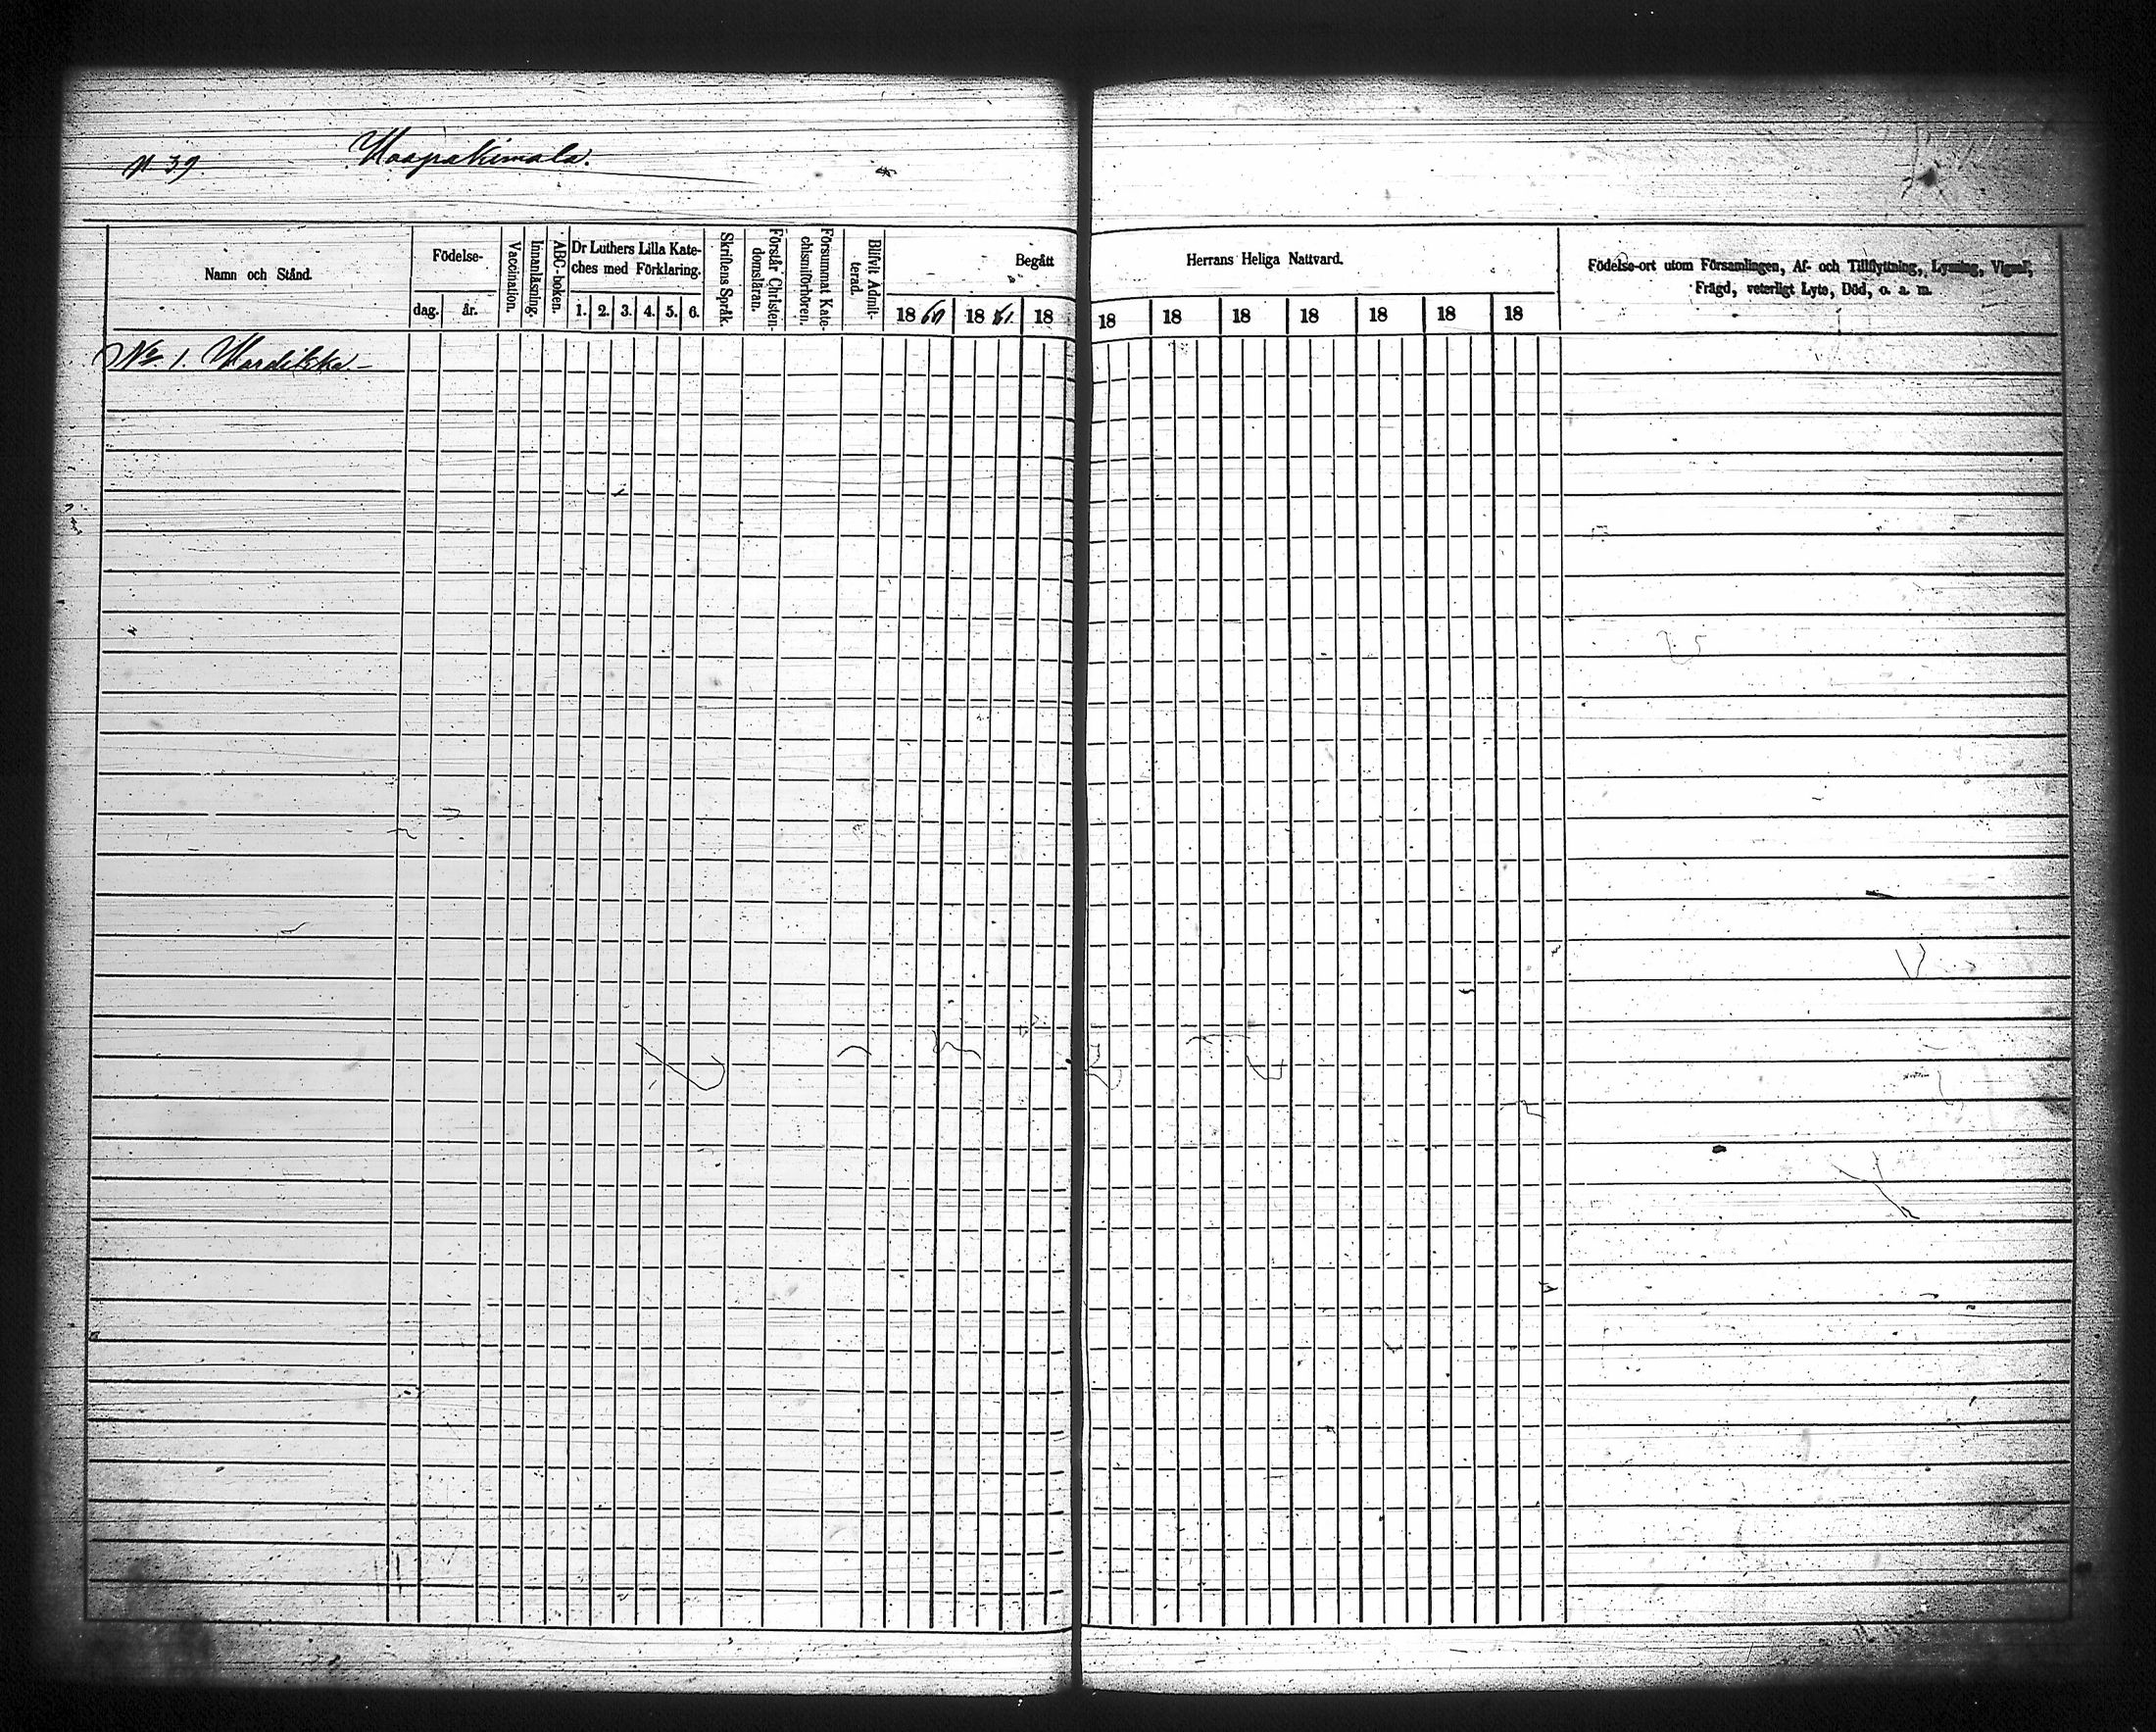 N 39. Haapakimola.
Namn och Stånd.
Födelse-
dag. år.
Vaccination.
Innanläsning.
ABC-boken.
Dr Luthers Lilla Kate-
ches med Förklaring.
1. 2. 3. 4. 5. 6.
Skriftens Språk.
Förstår Christen-
domsläran.
Försummat Kate-
chismiförhören.
Blifvit Admit-
terad.
Begått Herrans Heliga Nattvard.
1860 1861. 18 18 18 18 18 18 18 18
Födelse-ort utom Församlingen, Af- och Tillflyttning, Lysning, Vigsel,
Frägd, veterligt Lyte, Död, o. a. m.
No. 1.